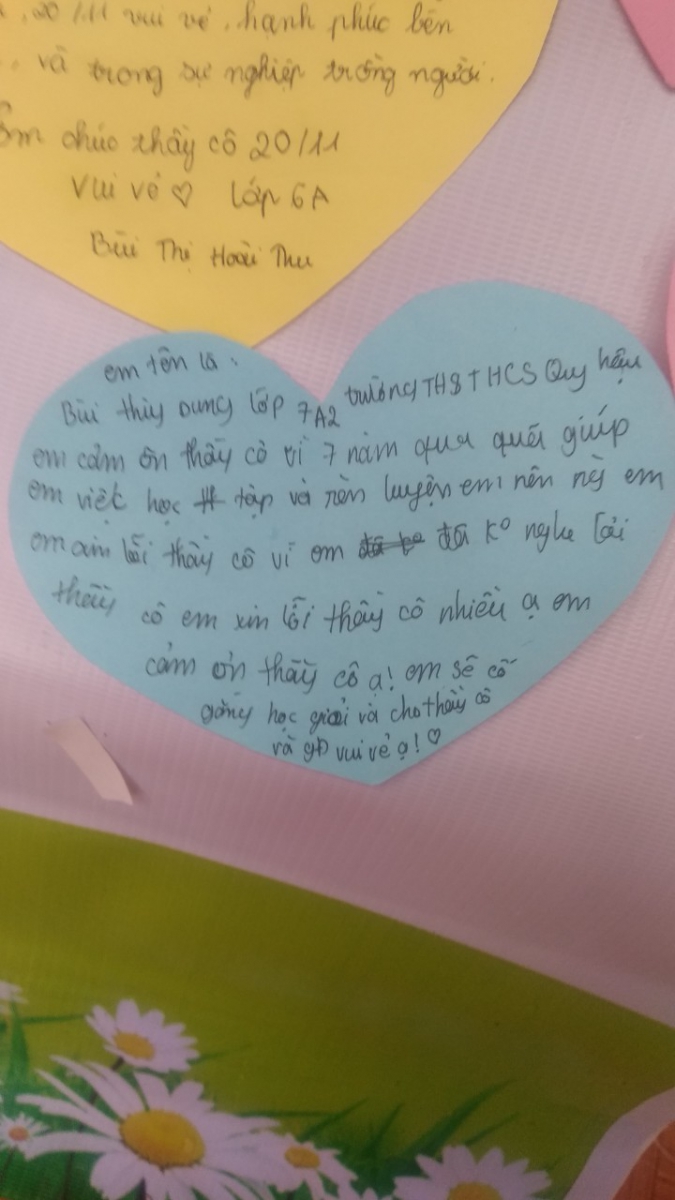 20/11 vui vẻ, hạnh phúc bên
, và trong sự nghiệp trồng người.
Em chúc thầy cô 20/11
Vui vẻ ♡ Lớp 6A
Bùi Thị Hoài Thu
em tên là :
Bùi thùy Dung lớp 7A2 trường TH&THCS Quy hậu
em cảm ơn thầy cô vì 7 năm qua quá giúp
em việt học tập và rèn luyện em nên ng em
em xin lỗi thầy cô vì em đã ko nghe lời
thầy cô em xin lỗi thầy cô nhiều ạ em
cảm ơn thầy cô ạ! em sẽ cố
gắng học giỏi và cho thầy cô
và gđ vui vẻ ạ! ♡